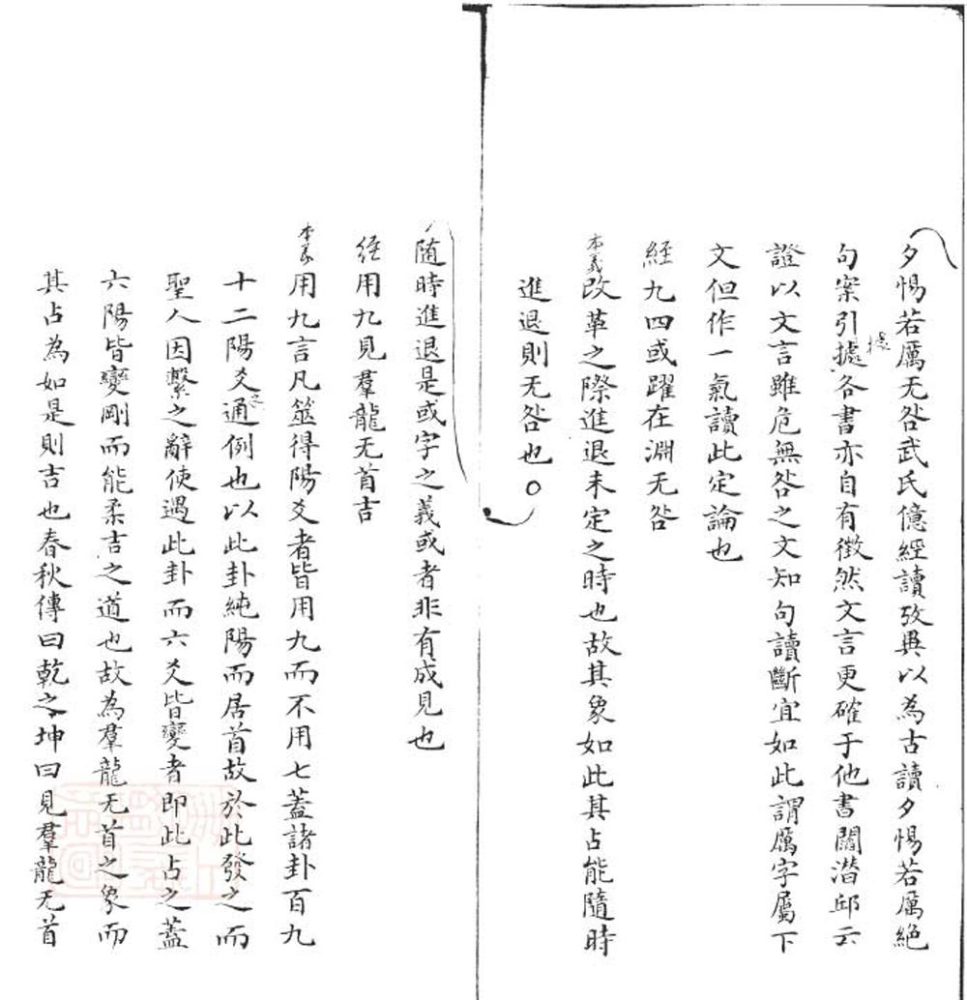 夕惕若厲无咎武氏億經讀攷異以為古讀夕惕若厲絕
句案引據各書亦自有徵然文言更確于他書閻潛邱云
據
證以文言雖危無咎之文知句讀斷宜如此謂厲字屬下
文但作一氣讀此定論也
經九四或躍在淵无咎
本義改革之際進退未定之時也故其象如此其占能隨時
進退則无咎也○
随時進退是或字之義或者非有成見也
经用九見羣龍无首吉
本義用九言凡筮得陽爻者皆用九而不用七蓋諸卦百九
十二陽爻之通例也以此卦純陽而居首故於此發之而
聖人因繫之辭使遇此卦而六爻皆變者即此占之蓋
六陽皆變剛而能柔吉之道也故為羣龍无首之象而
其占為如是則吉也春秋傳曰乾之坤曰見羣龍无首